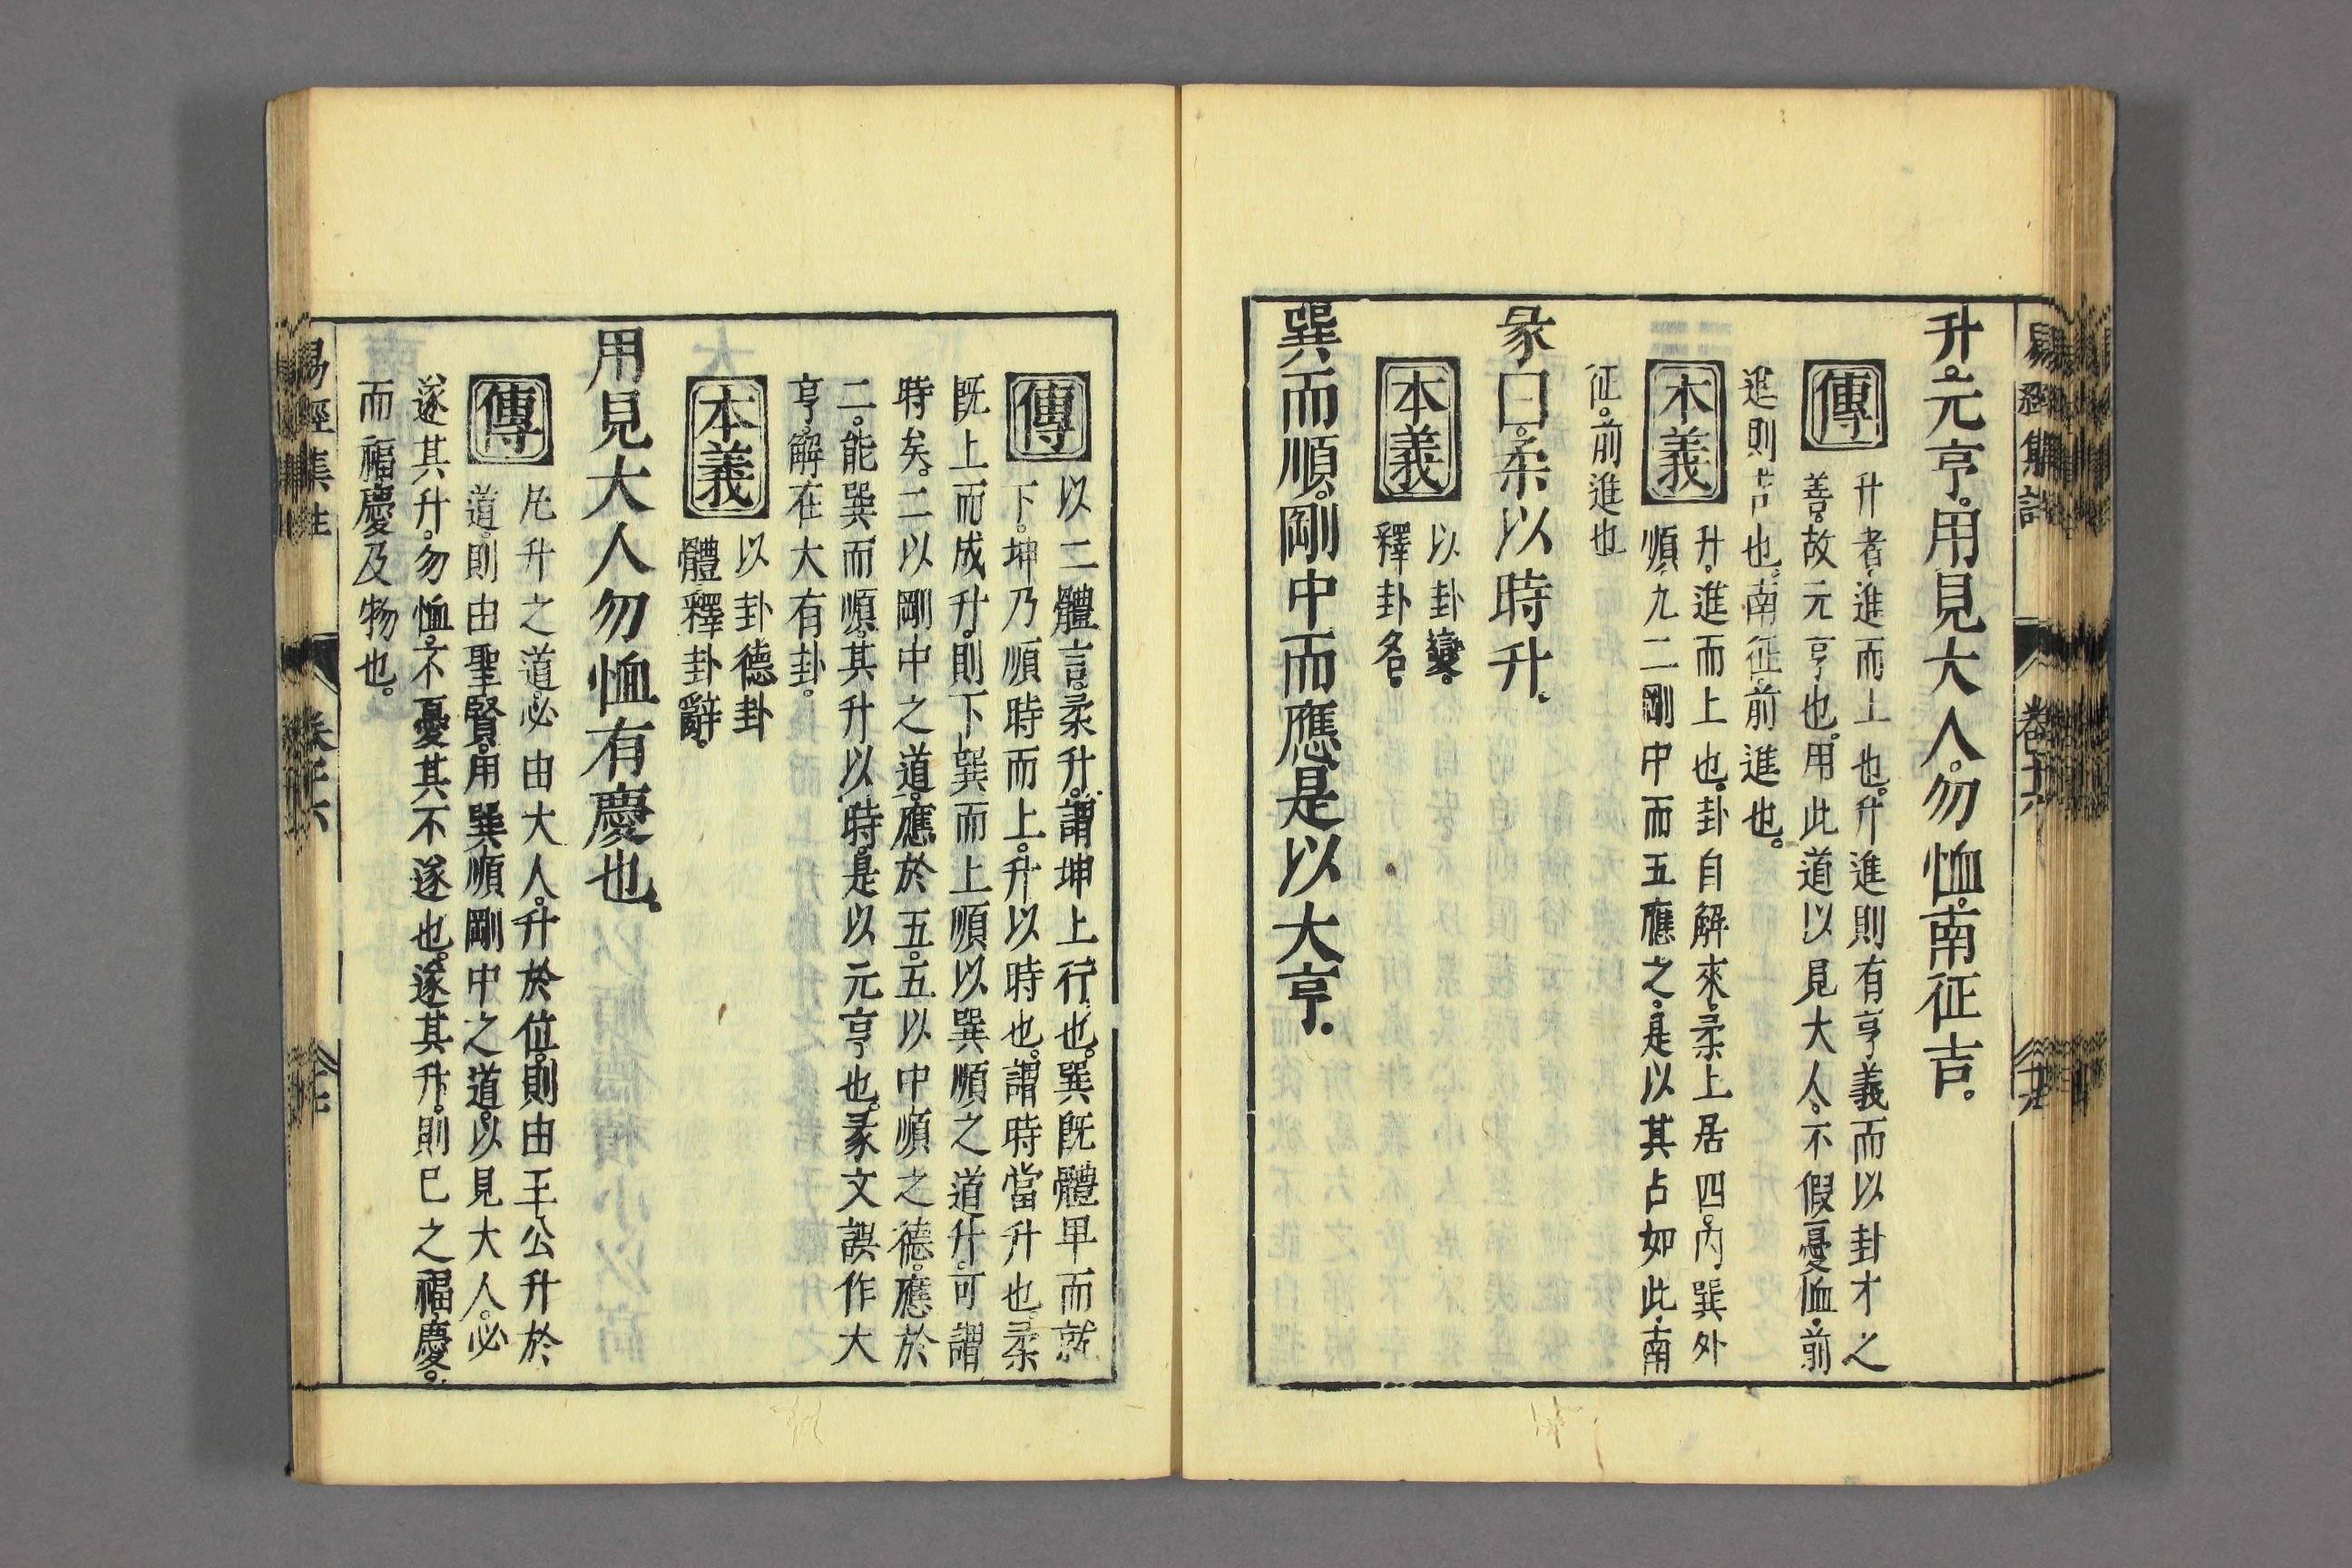 易經集註
卷十六
升。元亨。用見大人。勿恤。南征吉。
傳
升者。進而上也。升進則有亨義。而以卦才之
善。故元亨也。用此道以見大人。不假憂恤。前
進則吉也。南征。前進也。
本義
升。進而上也。卦自解來。柔上居四。內巽外
順。九二剛中而五應之。是以其占如此。南
征。前進也
彖曰。柔以時升。
本義
以卦變。
釋卦名。
巽而順。剛中而應。是以大亨。
傳
以二體言。柔升。謂坤上行也。巽旣體卑而就
下。坤乃順時而上。升以時也。謂時當升也。柔
旣上而成升。則下巽而上順。以巽順之道升。可謂
時矣。二以剛中之道。應於五。五以中順之德。應於
二。能巽而順。其升以時。是以元亨也。彖文誤作大
亨。解在大有卦。
本義
以卦德卦
體釋卦辭。
用見大人勿恤有慶也。
傳
凡升之道。必由大人。升於位。則由王公。升於
道。則由聖賢。用巽順剛中之道。以見大人。必
遂其升。勿恤。不憂其不遂也。遂其升。則已之福慶。
而福慶及物也。
易經集註